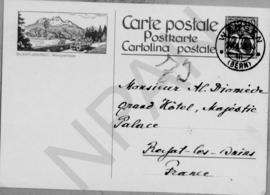 Carte postale
Postkarte
Cartolina postale
(BERN)
Monsieur Al. Diomède
Grand Hôtel, Majestic
Palace
Royat-les-Bains
France